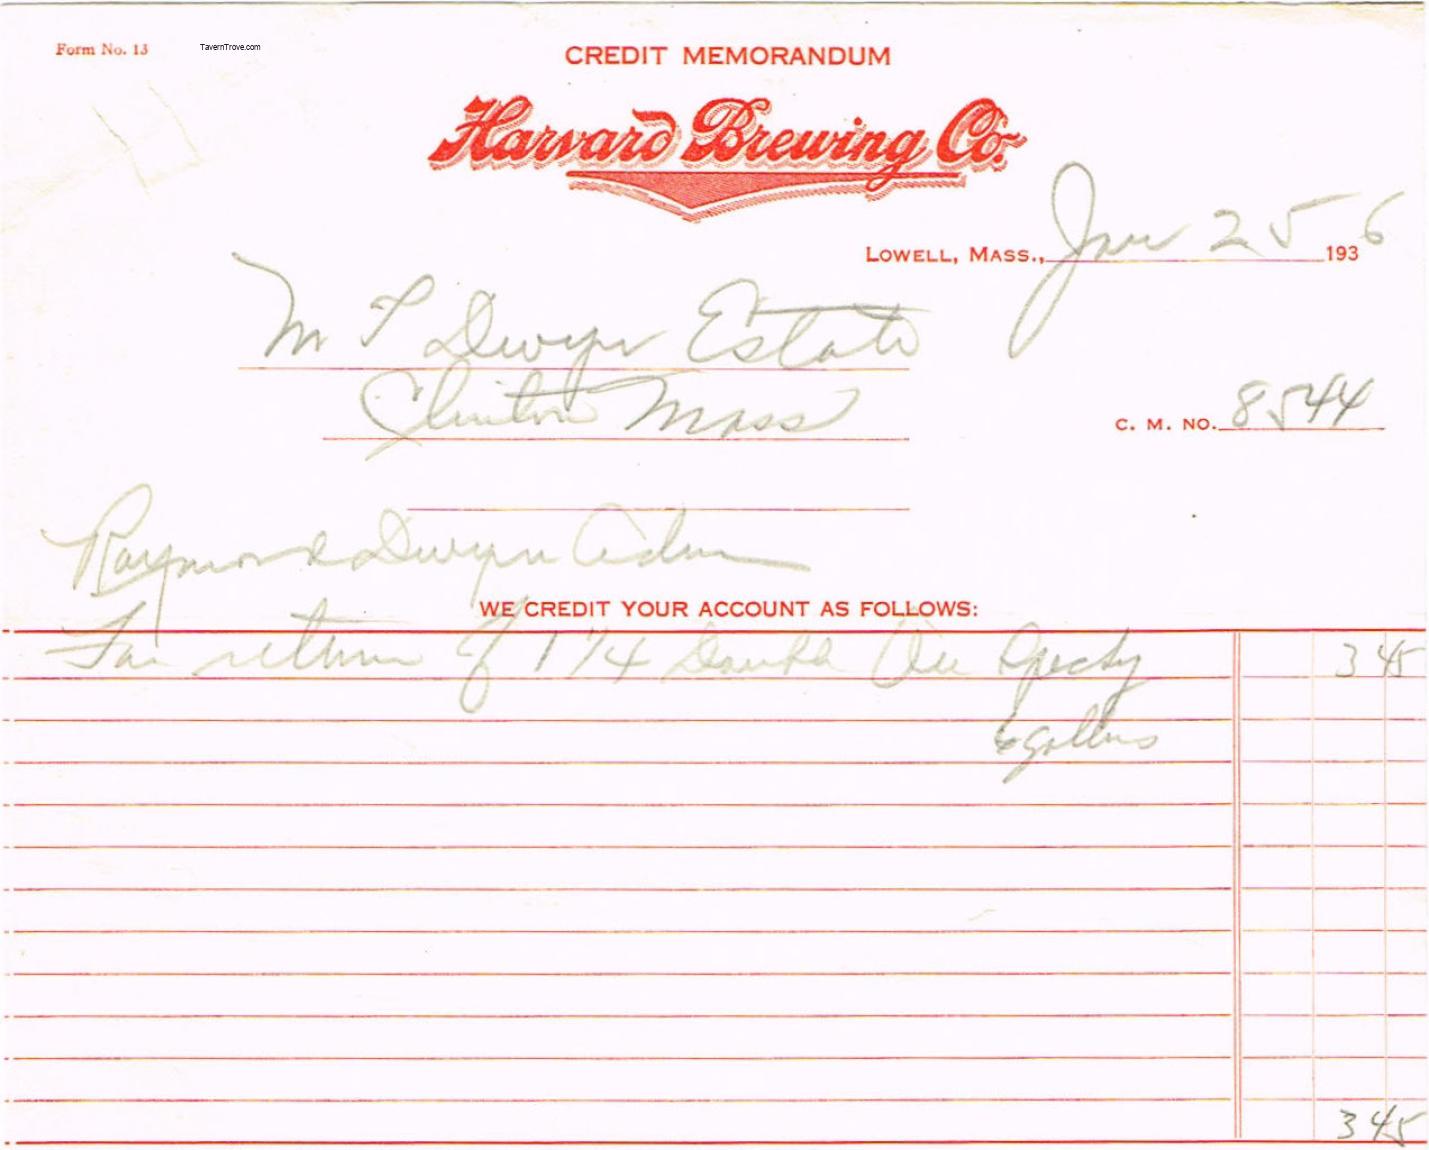 Form No. 13
TavernTrove.com
CREDIT MEMORANDUM
Harvard Brewing Co.
LOWELL, MASS., Jan 25 1936
M F Dwyer Estate
Clinton Mass
C. M. NO. 8544
Raymond Dwyer Adm
WE CREDIT YOUR ACCOUNT AS FOLLOWS:
For return of 1 1/4 3 45
6 gallons
3 45